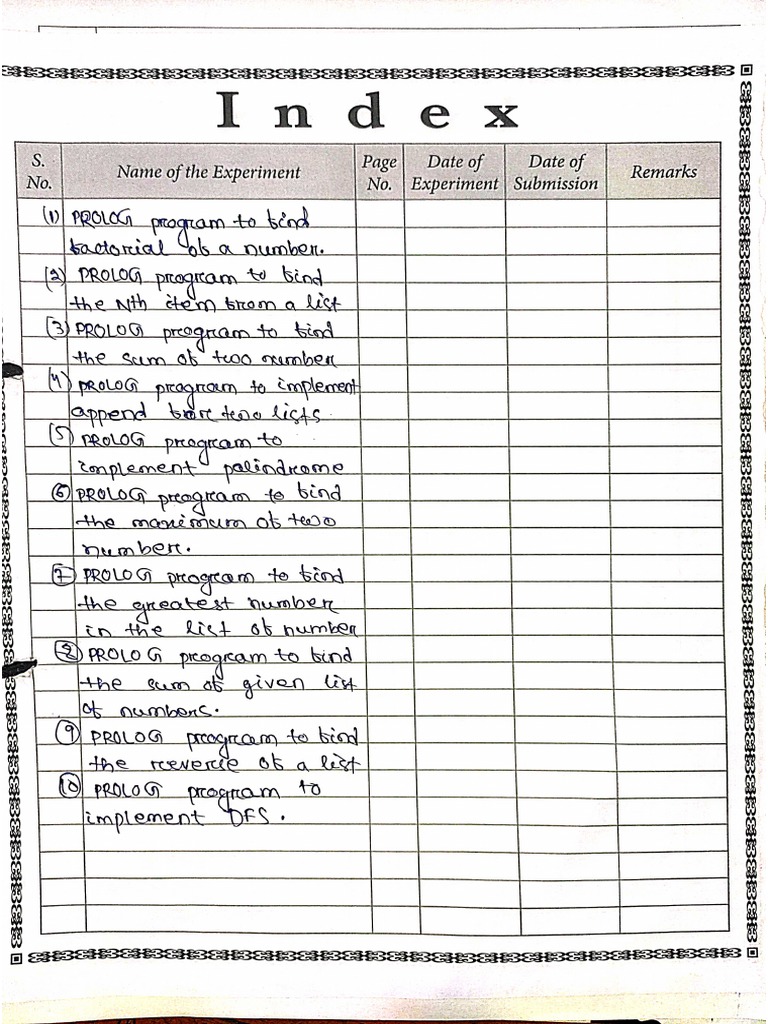 Index
S. No. Name of the Experiment Page No. Date of Experiment Date of Submission Remarks
(1) PROLOG program to find
factorial of a number.
(2) PROLOG program to find
the Nth item from a list
(3) PROLOG program to find
the sum of two number
(4) PROLOG program to implement
append for two lists
(5) PROLOG program to
implement palindrome
(6) PROLOG program to find
the maximum of two
number.
(7) PROLOG program to find
the greatest number
in the list of number
(8) PROLOG program to find
the sum of given list
of numbers.
(9) PROLOG program to find
the reverse of a list
(10) PROLOG program to
implement DFS.